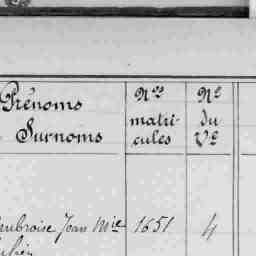 Prénoms
Surnoms
Nos
matri-
cules
No
du
Vo
Ambroise Jean Mie 1651 4